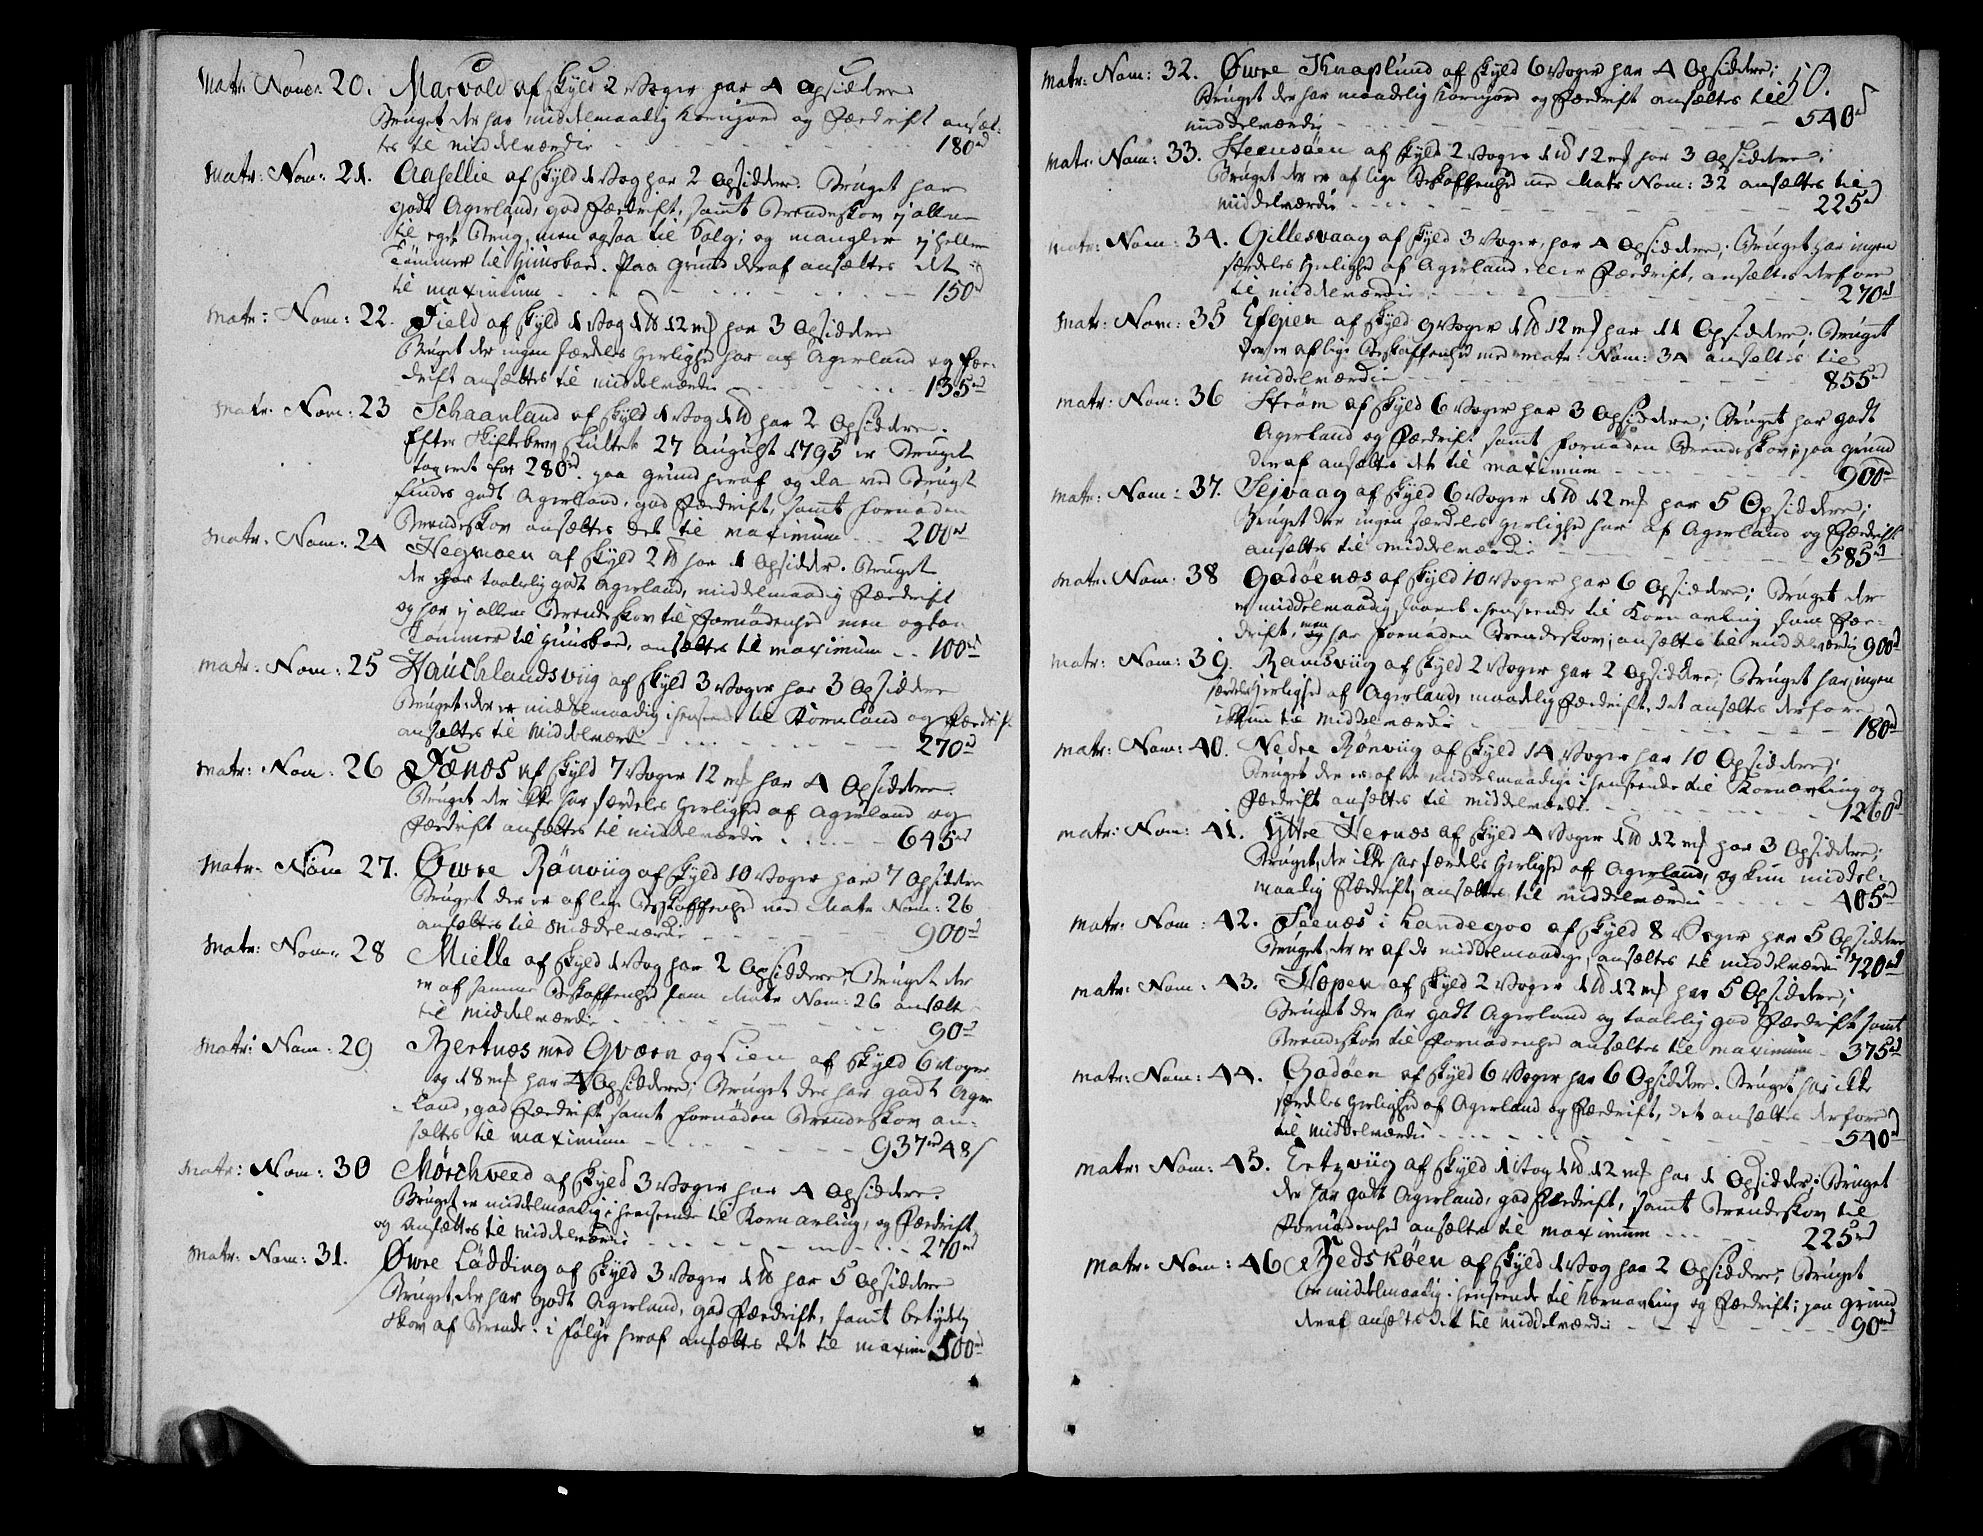 Matr: Nom: 20. Marvold af Skyld 2 Voger har 4 Opsiddere
Bruget der har middelmaadig Kornjord og Fædrift ansæt:
tes til middelværdie - - - 180rd
Matr: Nom: 21. Aasellie af Skyld 1 Vog har 2 Opsiddere. Bruget har
godt Agerland, god Fædrift, samt Brendeskov ej allene
til eget Brug, men ogsaa til Salg; og mangler ej heller
Tømmer til Huusboed. Paa Grund deraf ansættes det
til maximum - - - 150rd
Matr: Nom: 22. Field af Skyld 1 Vog 1 Pd 12 mk har 3 Opsiddere
Bruget der ingen særdeles Herlighed har af Agerland og Fæe-
drift ansættes til middelværdie - - - 135rd
Matr: Nom: 23 Schaanland af Skyld 1 Vog 1 Pd har 2 Opsiddere.
Efter Skiftebrev sluttet 27 August 1795 er Bruget
taxeret for 280rd. paa Grund heraf og da ved Bruget
findes godt Agerland, god Fædrift, samt fornøden
Brendeskov ansættes det til maximum - - - 200rd
Matr: Nom: 24 Hegmoen af Skyld 2 Pd har 1 Opsidder. Bruget
der har taalelig godt Agerland, middelmaadig Fædrift
og har ej allene Brendeskov til Fornødenhed men ogsaa
Tømmer til Huusboed, ansættes til maximum - - 100rd
Matr: Nom: 25 Hauchlandsviig af Skyld 3 Voger har 3 Opsiddere
Bruget der er middelmaadig i henseende til Kornland og Fædrift
ansættes til Middelværdie - - - 270rd
Matr: Nom: 26 Fænes af Skyld 7 Voger 12 mk har 4 Opsiddere.
Bruget der ikke har særdeles Herlighed af Agerland og
Fædrift ansættes til middelværdie - - - 645rd
Matr: Nom 27. Øvre Rønviig af Skyld 10 Voger har 7 Opsiddere
Bruget der er af lige Beskaffenhed med Matr Nom: 26
ansættes til Middelværdie - - - 900rd
Matr: Nom: 28 Mielle af Skyld 1 Vog har 2 Opsiddere; Bruget der
er af samme Beskaffenhed som Matr Nom: 26 ansættes
til Middelværdie - - - 90rd
Matr: Nom: 29 Bertnes med Gværn og Lien af Skyld 6 Voger
og 18 mk har 4 Opsiddere; Bruget der har godt Ager
Land, god Fædrift samt fornøden Brendeskov an-
sættes til maximum - - - 937rd 48 s
Matr: Nom: 30 Mørchveed af Skyld 3 Voger har 4 Opsiddere.
Bruget er middelmaadig i henseende til Kornavling, og Fædrift,
og ansættes til Middelværdie - - - 270rd
Matr: Nom: 31. Øvre Lødding af Skyld 3 Voger 1 Pd har 5 Opsiddere
Bruget, der har godt Agerland, god Fædrift, samt betydelig
Skov af Brende. i Følge heraf ansættes det til maxim 500rd
50.
Matr: Nom: 32. Øvre Knaplund af Skyld 6 Voger har 4 Opsiddere;
Bruget der har maadelig Kornjord og Fædrift ansættes til
middelværdie - - - 540rd
Matr: Nom: 33. Steensøen af Skyld 2 Voger 1 Pd 12 mk har 3 Opsiddere;
Bruget der er af lige Beskaffenhed med Matr Nom: 32 ansættes til
middelværdie - - - 225rd
Matr: Nom: 34. Gillesvaag af Skyld 3 Voger, har 4 Opsiddere; Bruget har ingen
særdeles Herlighed af Agerland eller Fædrift, ansættes derfore
til middelværdie - - - 270rd
Matr: Nom: 35 Espen af Skyld 9 Voger 1 Pd 12 mk har 11 Opsiddere; Bruget
der er af lige Beskaffenhed med Matr: Nom: 34 ansættes til
middelværdie - - - 855rd
Matr: Nom: 36 Strøm af Skyld 6 Voger har 3 Opsiddere; Bruget har godt
Agerland og Fædrift samt fornøden Brendeskov; paa Grund
deraf ansættes det til maximum - - - 900rd
Matr: Nom: 37. Sejvaag af Skyld 6 Voger 1 Pd 12 mk har 5 Opsiddere;
Bruget der ingen særdeles Herlighed har af Agerland og Fædrift
ansættes til middelværdie - - - 585rd
Matr: Nom: 38 Godøenæs af Skyld 10 Voger har 6 Opsiddere; Bruget der
er middelmaadig, saavel i henseende til Kornavling som Fæe-
drift, men har fornøden Brendeskov; ansættes til middelværdie 900rd
Matr: Nom: 39. Ramsviig af Skyld 2 Voger har 2 Opsiddere; Bruget har ingen
særdeles Herlighed af Agerland, maadelig Fædrift, det ansættes derfore
ikkun til Middelværdie - - - 180rd
Matr: Nom: 40. Nedre Rønviig af Skyld 14 Voger har 10 Opsiddere;
Bruget der er af de middelmaadige i henseende til Kornavling og
Fædrift ansættes til Middelværdie - - - 1260rd
Matr: Nom: 41. Yttre Hernæs af Skyld 4 Voger 1 Pd 12 mk har 3 Opsiddere;
Bruget, der ikke har særdeles Herlighed af Agerland, og kun middel-
maadig Fædrift, ansættes til middelværdie - - - 405rd
Matr: Nom: 42. Feenæs i Landegoe af Skyld 8 Voger har 5 Opsiddere
Bruget, der er af de middelmaadige, ansættes til middelværdie 720rd
Matr: Nom: 43. Hopen af Skyld 2 Voger 1 Pd 12 mk har 5 Opsiddere;
Bruget der har godt Agerland og taalelig god Fædrift samt
Brendeskov til Fornødenhed ansættes til maximum - 375rd
Matr: Nom: 44. Godøen af Skyld 6 Voger har 6 Opsiddere. Bruget har ikke
særdeles Herlighed af Agerland og Fædrift, det ansættes derfore
til Middelværdie - - - 540rd
Matr: Nom: 45. Ertzviig af Skyld 1 Vog 1 Pd 12 mk har 1 Opsidder; Bruget
der har godt Agerland, god Fædrift, samt Brendeskov til
Fornødenhed ansættes til maximum - - - 225rd
Matr: Nom: 46 Bedskøen af Skyld 1 Vog har 2 Opsiddere; Bruget
er middelmaadig i henseende til Kornavling og Fædrift; paa Grund
deraf ansættes det til Middelværdie - - - 90rd